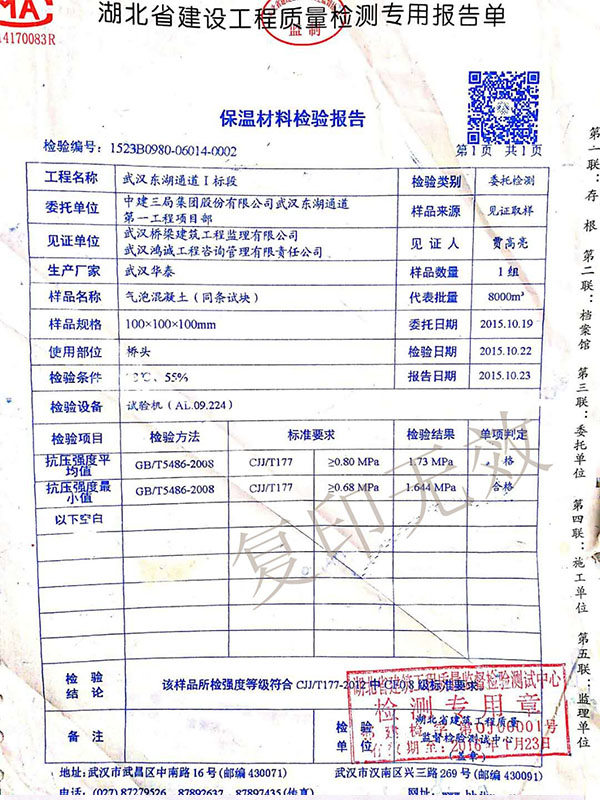 湖北省建设工程质量检测专用报告单
MA
14170083R
监制
保温材料检验报告
检验编号：1523B0980-06014-0002
第1页 共1页
工程名称 武汉东湖通道Ⅰ标段 检验类别 委托检测
委托单位 中建三局集团股份有限公司武汉东湖通道 样品来源 见证取样
第一工程项目部
见证单位 武汉桥梁建筑工程监理有限公司 见证人 贾高亮
武汉鸿诚工程咨询管理有限责任公司
生产厂家 武汉华泰 样品数量 1组
样品名称 气泡混凝土（同条试块） 代表批量 8000m³
样品规格 100×100×100mm 委托日期 2015.10.19
使用部位 桥头 检验日期 2015.10.22
检验条件 ℃、55% 报告日期 2015.10.23
检验设备 试验机（AL.09.224）
检验项目 检验方法 标准要求 检验结果 单项判定
抗压强度平均值 GB/T5486-2008 CJJ/T177 ≥0.80 MPa 1.73 MPa 格
抗压强度最小值 GB/T5486-2008 CJJ/T177 ≥0.68 MPa 1.644 MPa 合格
以下空白
复印无效
检验结论 该样品所检强度等级符合 CJJ/T177-2012 中 CF0.8 级标准要求
湖北省建筑工程质量监督检验测试中心
检测专用章
第0100001号
有效期至：2016年1月23日
备注 检验单位 湖北省建筑工程质量
监督检验测试中心
（盖章）
地址：武汉市武昌区中南路16号(邮编 430071) 武汉市汉南区兴三路269号(邮编 430091)
电话：(027) 87279526、87892637、87897435(传真)
第一联：存根 第二联：档案馆 第三联：委托单位 第四联：施工单位 第五联：监理单位